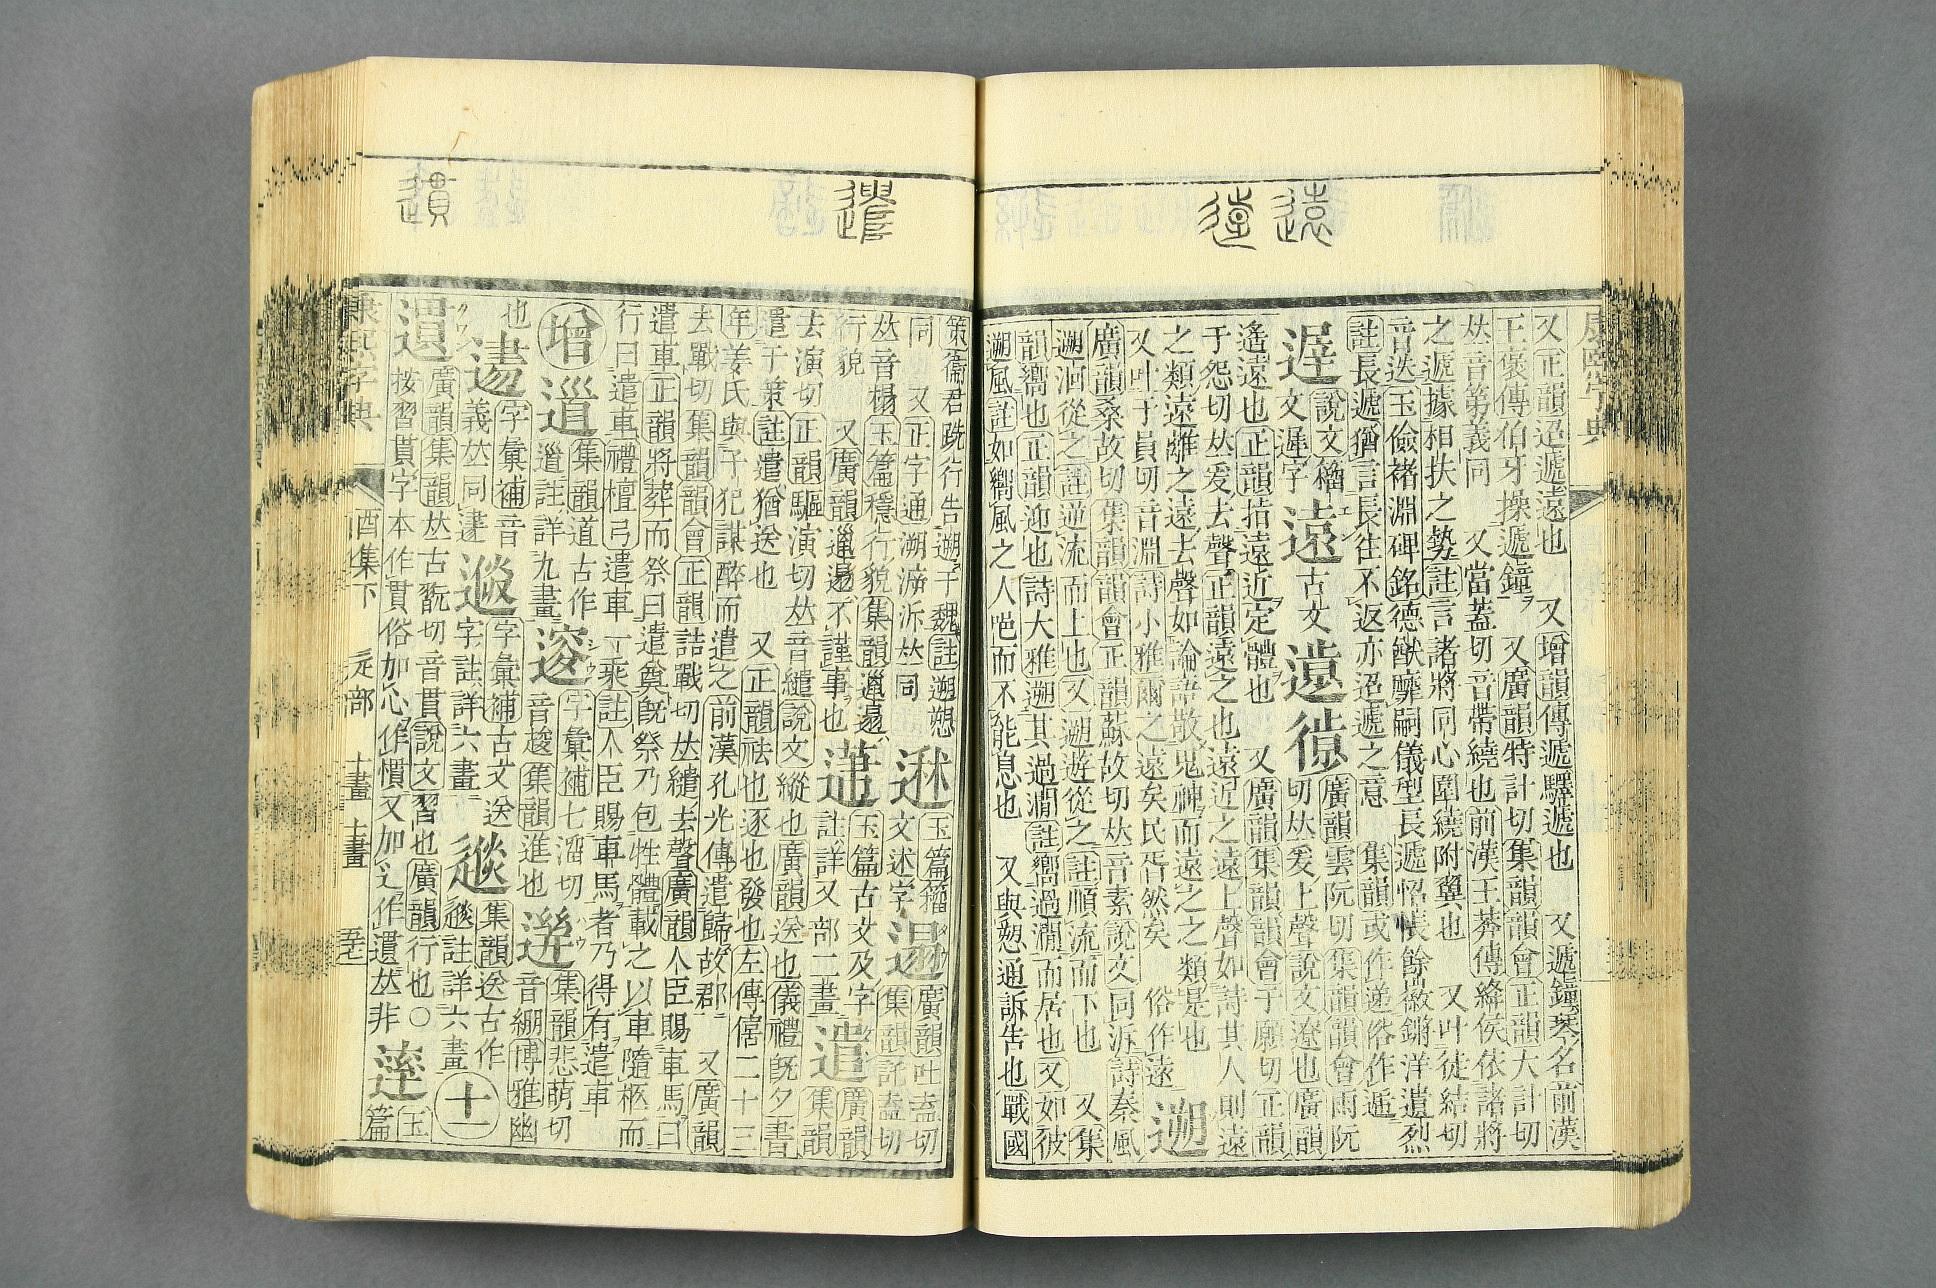 康熙字典
又正韻迢遞遠也 又增韻傳遞驛遞也 又遞鐘琴名前漢
王褒傳伯牙操遞鐘 又廣韻特計切集韻韻會正韻大計切
𠀤音第義同 又當蓋切音帶繞也前漢王莽傳絳侯依諸將
之遞據相扶之勢註言諸將同心圍繞附翼也 又叶徒結切
音迭王儉褚淵碑銘德猷靡嗣儀型長遞怊悵餘徽鏘洋遺烈
註長遞猶言長往不返亦迢遞之意 集韻或作递俗作逓
遟 說文籀文遲字 遠 古文 𨖸 𢕱 廣韻雲阮切集韻韻會雨阮切𠀤爰上聲說文遼也廣韻
遙遠也正韻指遠近定體也 又廣韻集韻韻會于願切正韻
于怨切𠀤爰去聲正韻遠之也遠近之遠上聲如詩其人則遠
之類遠離之遠去聲如論語敬鬼神而遠之之類是也
又叶于員切音淵詩小雅爾之遠矣民胥然矣 俗作逺 遡
廣韻桑故切集韻韻會正韻蘇故切𠀤音素說文同泝詩秦風
遡洄從之註逆流而上也又遡遊從之註順流而下也 又集
韻嚮也正韻迎也詩大雅遡其過澗註嚮過澗而居也又如彼
遡風註如嚮風之人唈而不能息也 又與愬通訴告也戰國
策衞君跣行告遡于魏註遡愬
同 又正字通溯㴑泝𠀤同 𨒪 玉篇籀文述字 遢 廣韻吐盍切集韻託盍切
𠀤音榻玉篇穩行貌集韻邋遢
行貌 又廣韻邋遢不謹事也 玉篇古文及字註詳又部二畫 遣 廣韻集韻
去演切正韻驅演切𠀤音繾說文縱也廣韻送也儀禮旣夕書
遣于策註遣猶送也 又正韻祛也逐也發也左傳僖二十三
年姜氏與子犯謀醉而遣之前漢孔光傳遣歸故郡 又廣韻
去戰切集韻韻會正韻詰戰切𠀤繾去聲廣韻人臣賜車馬曰
遣車正韻將葬而祭曰遣奠旣祭乃包牲體載之以車隨柩而
行曰遣車禮檀弓遣車一乘註人臣賜車馬者乃得有遣車
增 𨕥 集韻道古作𨕥註詳九畫 字彙補七溜切音䠞集韻進也 集韻悲萌切音綳博雅幽
也 字彙補音義𠀤同逮 字彙補古文送字註詳六畫 集韻送古作註詳六畫 十一
遦 廣韻集韻𠀤古翫切音貫說文習也廣韻行也○
按習貫字本作貫俗加心作慣又加辵作遦𠀤非 達 玉篇
康熙字典 酉集下 辵部 十畫 十一畫